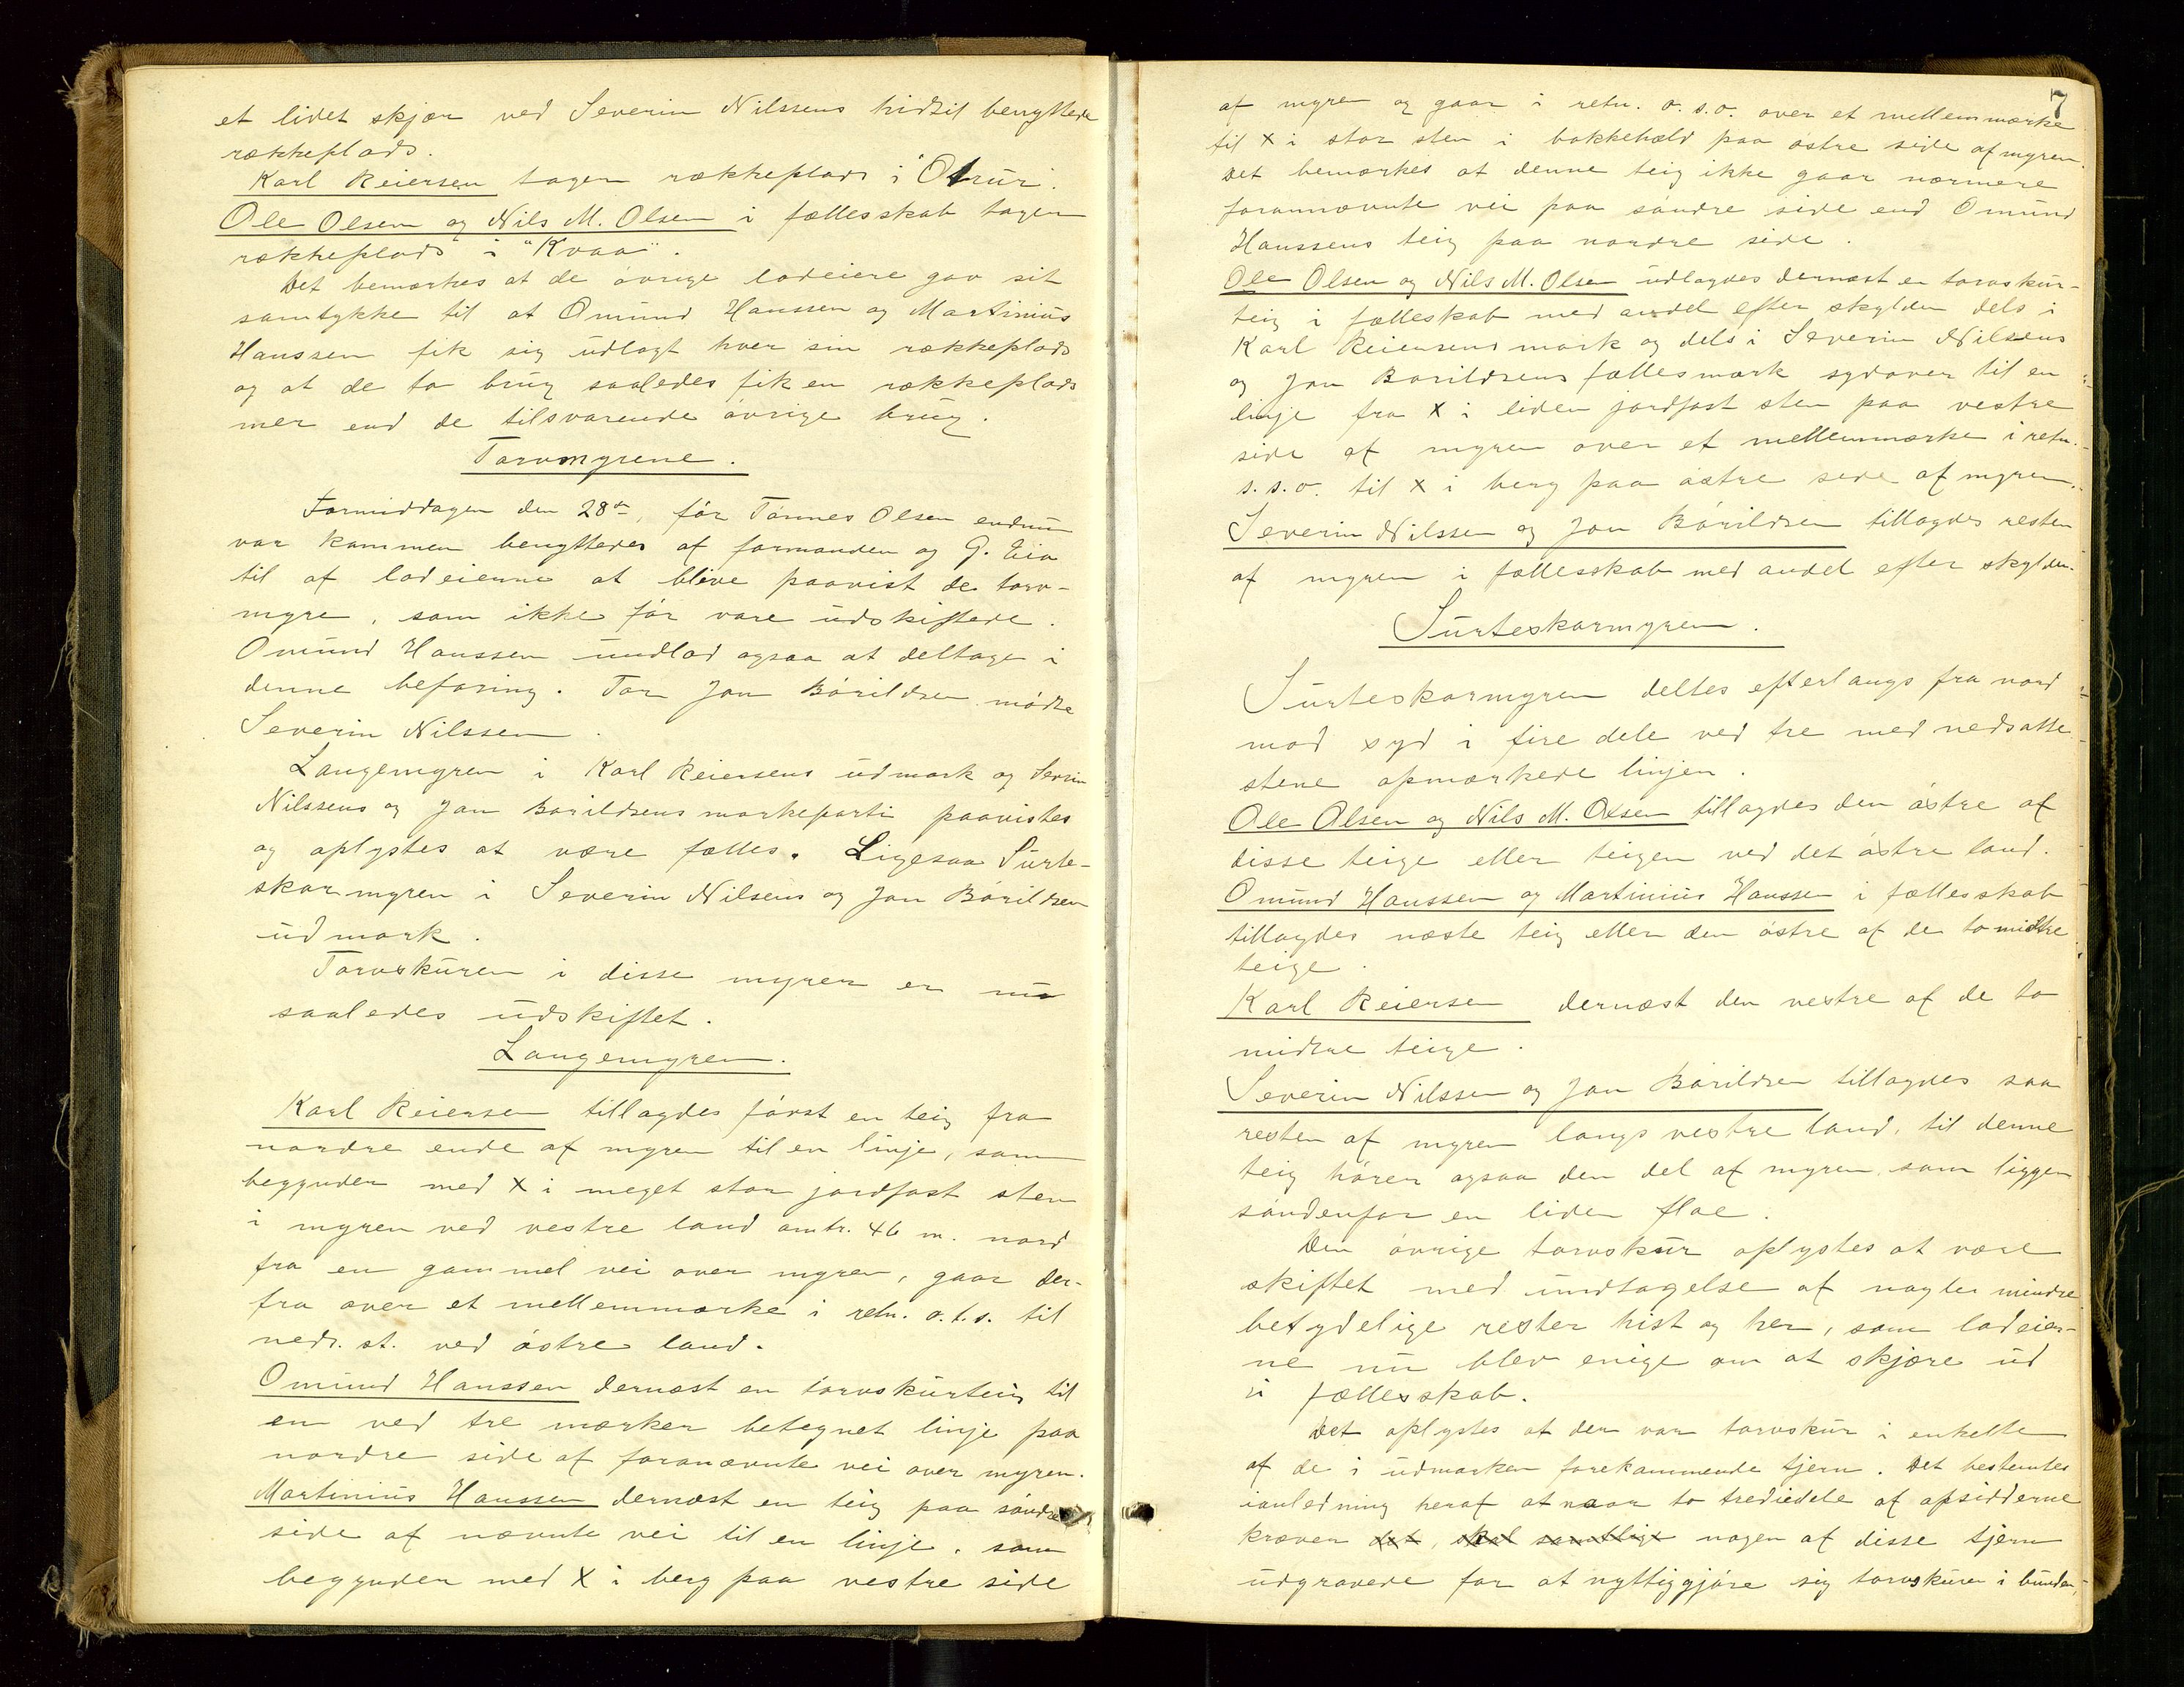 et lidet skjær ved Severin Nilssens hidtil benyttede
rækkeplads.
Karl Reiersen tager rækkeplads i "Otrur".
Ole Olsen og Nils M. Olsen i fællesskab tager
rækkeplads i "Kvaa".
Det bemærkes at de øvrige lodeiere gav sit
samtykke til at Omund Hanssen og Martinius
Hanssen fik sig udlagt hver sin rækkeplads
og at de to brug saaledes fik en rækkeplads
mer end de tilsvarende øvrige brug.
Torvmyrene.
Formiddagen den 28de, før Tønnes Olsen endnu
var kommen benyttedes af formanden og G. Eia
til af lodeierne at blive paavist de torv-
myre, som ikke før vare udskiftede.
Omund Hanssen undlod ogsaa at deltage i
denne befaring. For Jon Bårildsen mødte
Severin Nilssen.
Langemyren i Karl Reiersens udmark og Sevrin
Nilssens og Jon Borildsens markeparti paavistes
og oplystes at være fælles. Ligesaa Surte-
skarmyren i Severin Nilsens og Jon Bårildsen
udmark.
Torvskuren i disse myrer er nu
saaledes udskiftet.
Langemyren.
Karl Reiersen tillagdes først en teig fra
nordre ende af myren til en linje, som
begynder med X i meget stor jordfast sten
i myren ved vestre land omtr. 46 m. nord
fra en gammel vei over myren, gaar der-
fra over et mellemmærke i retn. o. t. s. til
neds. st. ved østre land.
Omund Hanssen dernæst en torvskurteig til
en ved tre mærker betegnet linje paa
nordre side af forannævnte vei over myren.
Martinius Hanssen dernæst en teig paa søndre
side af nævnte vei til en linje, som
begynder med X i berg paa vestre side
7
af myren og gaar i retn. o. s. o. over et mellemmærke
til X i stor sten i bakkehæld paa østre side af myren.
Det bemærkes at denne teig ikke gaar nærmere
forannævnte vei paa søndre side end Omund
Hanssens teig paa nordre side.
Ole Olsen og Nils M. Olsen udlagdes dernæst en torvskur-
teig i fælleskab med andel efter skylden dels i
Karl Reiersens mark og dels i Severin Nilsens
og Jon Borildsens fællesmark sydover til en
linje fra X i liden jordfast sten paa vestre
side af myren over et mellemmærke i retn.
s. s. o. til X i berg paa østre side af myren.
Severin Nilssen og Jon Bårildsen tillagdes resten
af myren i fællesskab med andel efter skylden.
Surteskarmyren.
Surteskarmyren deltes efterlangs fra nord
mod syd i fire dele ved tre med nedsatte
stene opmærkede linjer.
Ole Olsen og Nils M. Olsen tillagdes den østre af
disse teige eller teigen ved det østre land.
Omund Hanssen og Martinius Hanssen i fællesskab
tillagdes næste teig eller den østre af de to midtre
teige.
Karl Reiersen dernæst den vestre af de to
midtre teige.
Severin Nilssen og Jon Bårildsen tillagdes saa
resten af myren langs vestre land, til denne
teig hører ogsaa den del af myren, som ligger
søndenfor en liden floe.
Den øvrige torvskur oplystes at være
skiftet med undtagelse af nogle mindre
betydelige rester hist og her, som lodeier-
ne nu blev enige om at skjære ud
i fællesskab.
Det oplystes at der var torvskur i enkelte
af de i udmarken forekommende tjern. Det bestemtes
i anledning heraf at naar to trediedele af opsidderne
kræver det, skal samtligt nogen af disse tjern
udgravede for at nyttiggjøre sig torvskuren i bunden,